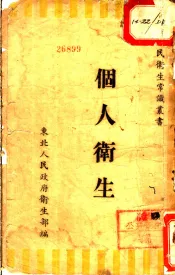 26899
民衛生常識叢書
個人衛生
東北人民政府衛生部編